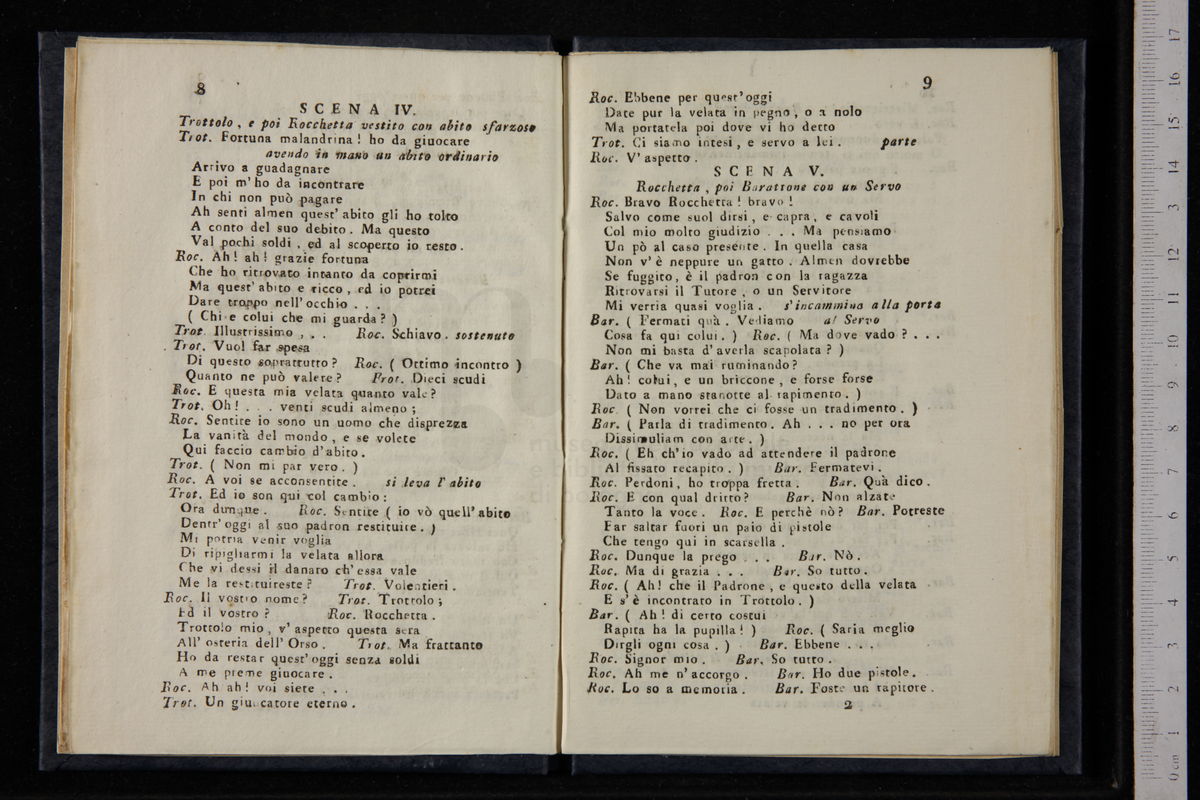 8
SCENA IV.
Trottolo, e poi Rocchetta vestito con abito sfarzoso
Trot. Fortuna malandrina! ho da giuocare
avendo in mano un abito ordinario
Arrivo a guadagnare
E poi m'ho da incontrare
In chi non può pagare
Ah senti almen quest'abito gli ho tolto
A conto del suo debito. Ma questo
Val pochi soldi, ed al scoperto io resto.
Roc. Ah! ah! grazie fortuna
Che ho ritrovato intanto da coprirmi
Ma quest'abito e ricco, ed io potrei
Dare troppo nell'occhio . . .
( Chi e colui che mi guarda? )
Trot. Illustrissimo , . . Roc. Schiavo. sostenuto
Trot. Vuol far spesa
Di questo soprattutto? Roc. ( Ottimo incontro )
Quanto ne può valere? Trot. Dieci scudi
Roc. E questa mia velata quanto vale?
Trot. Oh! . . . venti scudi almeno;
Roc. Sentite io sono un uomo che disprezza
La vanità del mondo, e se volete
Qui faccio cambio d'abito.
Trot. ( Non mi par vero. )
Roc. A voi se acconsentite. si leva l'abito
Trot. Ed io son qui col cambio:
Ora dunque. Roc. Sentite ( io vò quell'abito
Dentr'oggi al suo padron restituire. )
Mi potria venir voglia
Di ripigliarmi la velata allora
Che vi dessi il danaro ch'essa vale
Me la restituireste? Trot. Volentieri.
Roc. Il vostro nome? Trot. Trottolo;
Ed il vostro? Roc. Rocchetta.
Trottolo mio, v'aspetto questa sera
All'osteria dell'Orso. Trot. Ma frattanto
Ho da restar quest'oggi senza soldi
A me preme giuocare.
Roc. Ah ah! voi siete . . .
Trot. Un giuocatore eterno.
9
Roc. Ebbene per quest'oggi
Date pur la velata in pegno, o a nolo
Ma portatela poi dove vi ho detto
Trot. Ci siamo intesi, e servo a lei. parte
Roc. V'aspetto.
SCENA V.
Rocchetta, poi Barattone con un Servo
Roc. Bravo Rocchetta! bravo!
Salvo come suol dirsi, e capra, e cavoli
Col mio molto giudizio . . . Ma pensiamo
Un pò al caso presente. In quella casa
Non v'è neppure un gatto. Almen dovrebbe
Se fuggito, è il padron con la ragazza
Ritrovarsi il Tutore, o un Servitore
Mi verria quasi voglia. s'incammina alla porta
Bar. ( Fermati quà. Vediamo al Servo
Cosa fa qui colui. ) Roc. ( Ma dove vado? . . .
Non mi basta d'averla scapolata? )
Bar. ( Che va mai ruminando?
Ah! colui, e un briccone, e forse forse
Dato a mano stanotte al rapimento. )
Roc. ( Non vorrei che ci fosse un tradimento. )
Bar. ( Parla di tradimento. Ah . . . no per ora
Dissimuliam con arte. )
Roc. ( Eh ch'io vado ad attendere il padrone
Al fissato recapito. ) Bar. Fermatevi.
Roc. Perdoni, ho troppa fretta. Bar. Quà dico.
Roc. E con qual dritto? Bar. Non alzate
Tanto la voce. Roc. E perchè nò? Bar. Potreste
Far saltar fuori un paio di pistole
Che tengo qui in scarsella.
Roc. Dunque la prego . . . Bar. Nò.
Roc. Ma di grazia . . . Bar. So tutto.
Roc. ( Ah! che il Padrone, e questo della velata
E s'è incontrato in Trottolo. )
Bar. ( Ah! di certo costui
Rapita ha la pupilla! ) Roc. ( Saria meglio
Dirgli ogni cosa. ) Bar. Ebbene . . .
Roc. Signor mio. Bar. So tutto.
Roc. Ah me n'accorgo. Bar. Ho due pistole.
Roc. Lo so a memoria. Bar. Foste un rapitore.
2